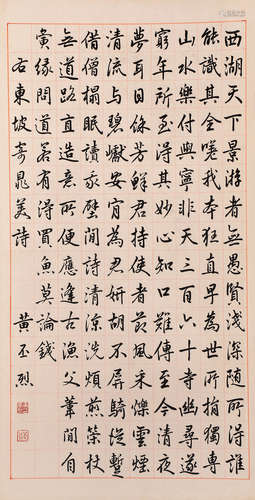 西湖天下景游者無愚賢淺深隨所得誰
能識其全嗟我本狂直早為世所捐獨專
山水樂付與寧非天三百六十寺幽尋遂
窮年所至得其妙心知口難傳至今清夜
夢耳目餘芳鮮君持使者節風采爍雲煙
清流與碧巘安肯為君妍胡不屏騎從蹔
借僧榻眠讀我壁間詩清涼洗煩煎策杖
無道路直造意所便應逢古漁父葦間自
夤緣問道若有得買魚莫論錢
右東坡寄晁美詩 黃丕烈